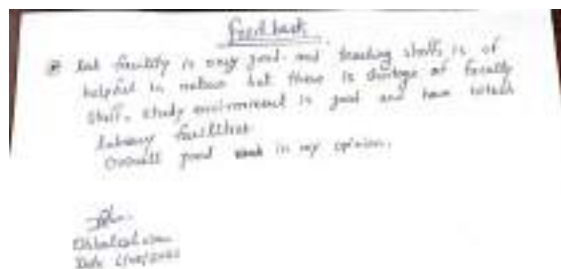 Feedback
Lab facility is very good and teaching staff is of
helpful in nature but there is shortage of faculty
staff. study environment is good and have
library facilities
Overall good in my opinion.
Date